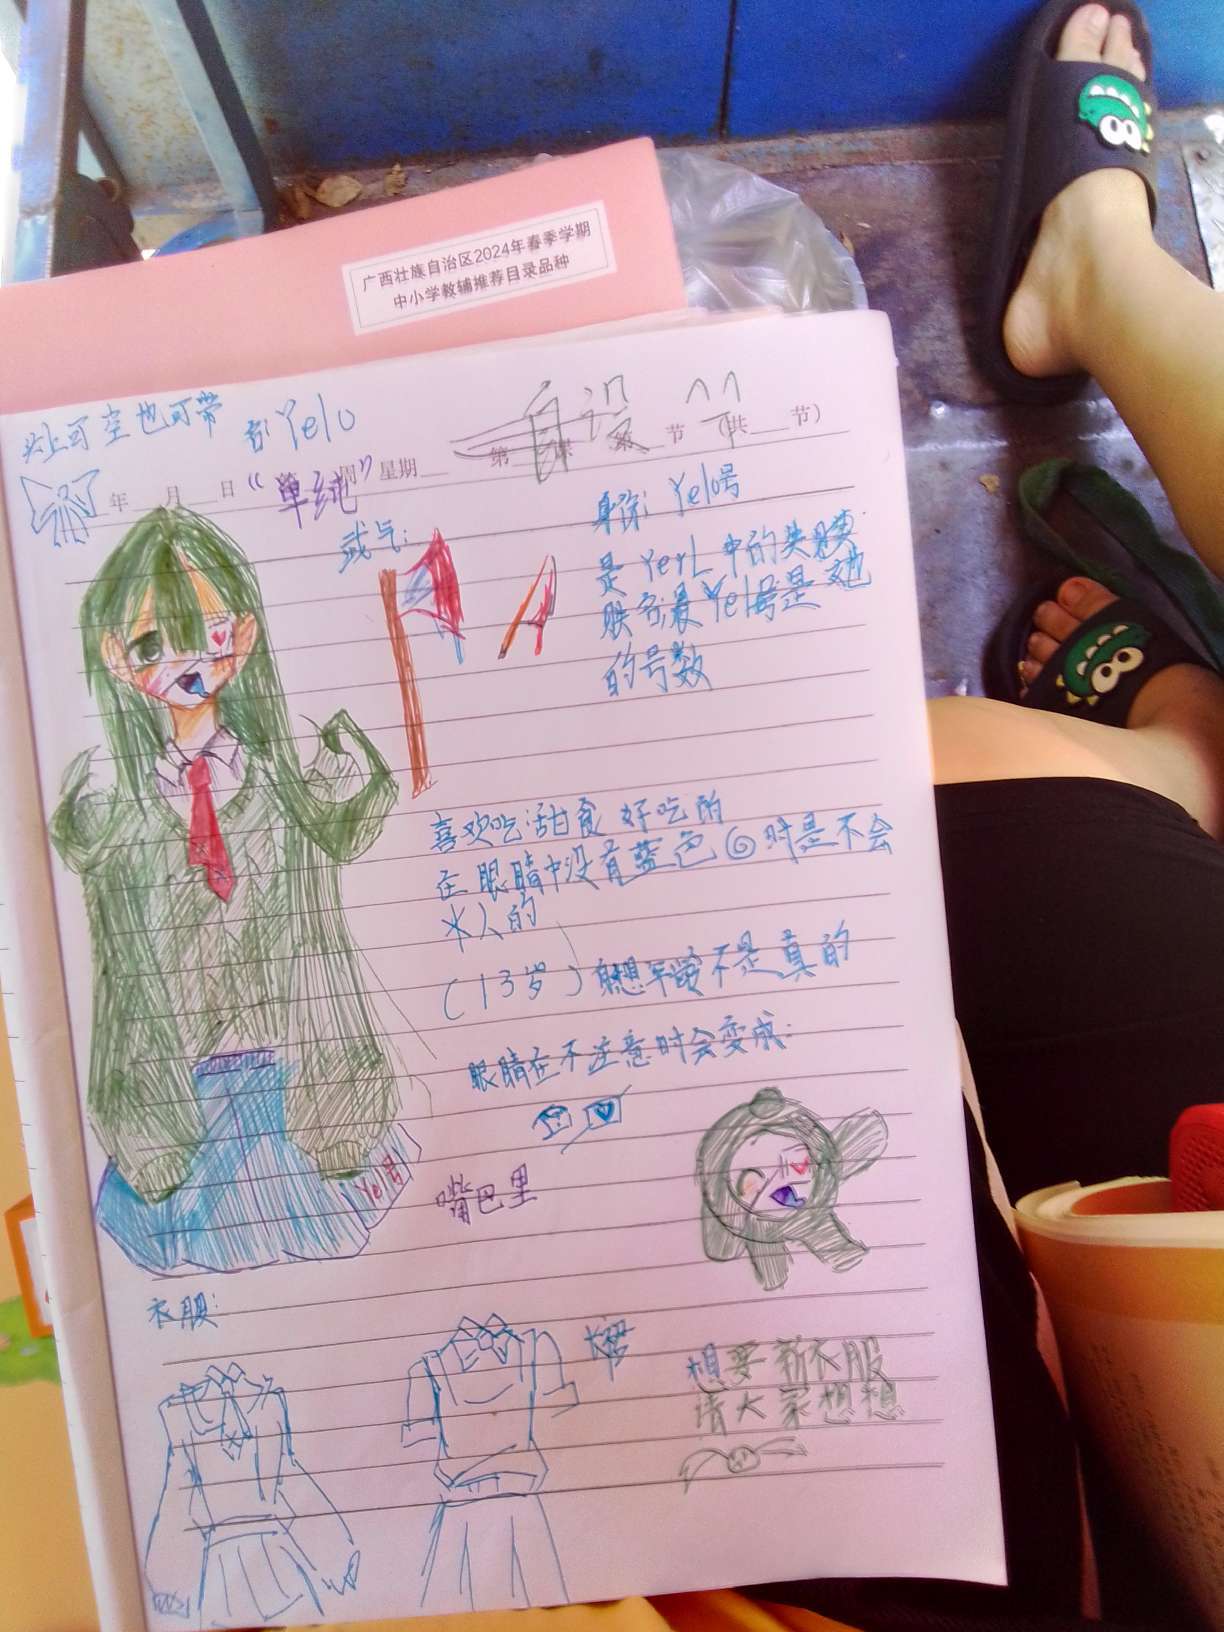 广西壮族自治区2024年春季学期
中小学教辅推荐目录品种
头上可空也可带
名:Yelo
自设
年 月 日
星期
第 课
第 节
(共 节)
"单纯"
武气:
身份: Yelo号
是YerL中的失败
的号数
喜欢吃甜食 好吃的
在眼睛中没有蓝色◎时是不会
(13岁)
不是真的
眼睛在不注意时会变成:
嘴巴里
Yel号
衣服:
想要新衣服
请大家想想